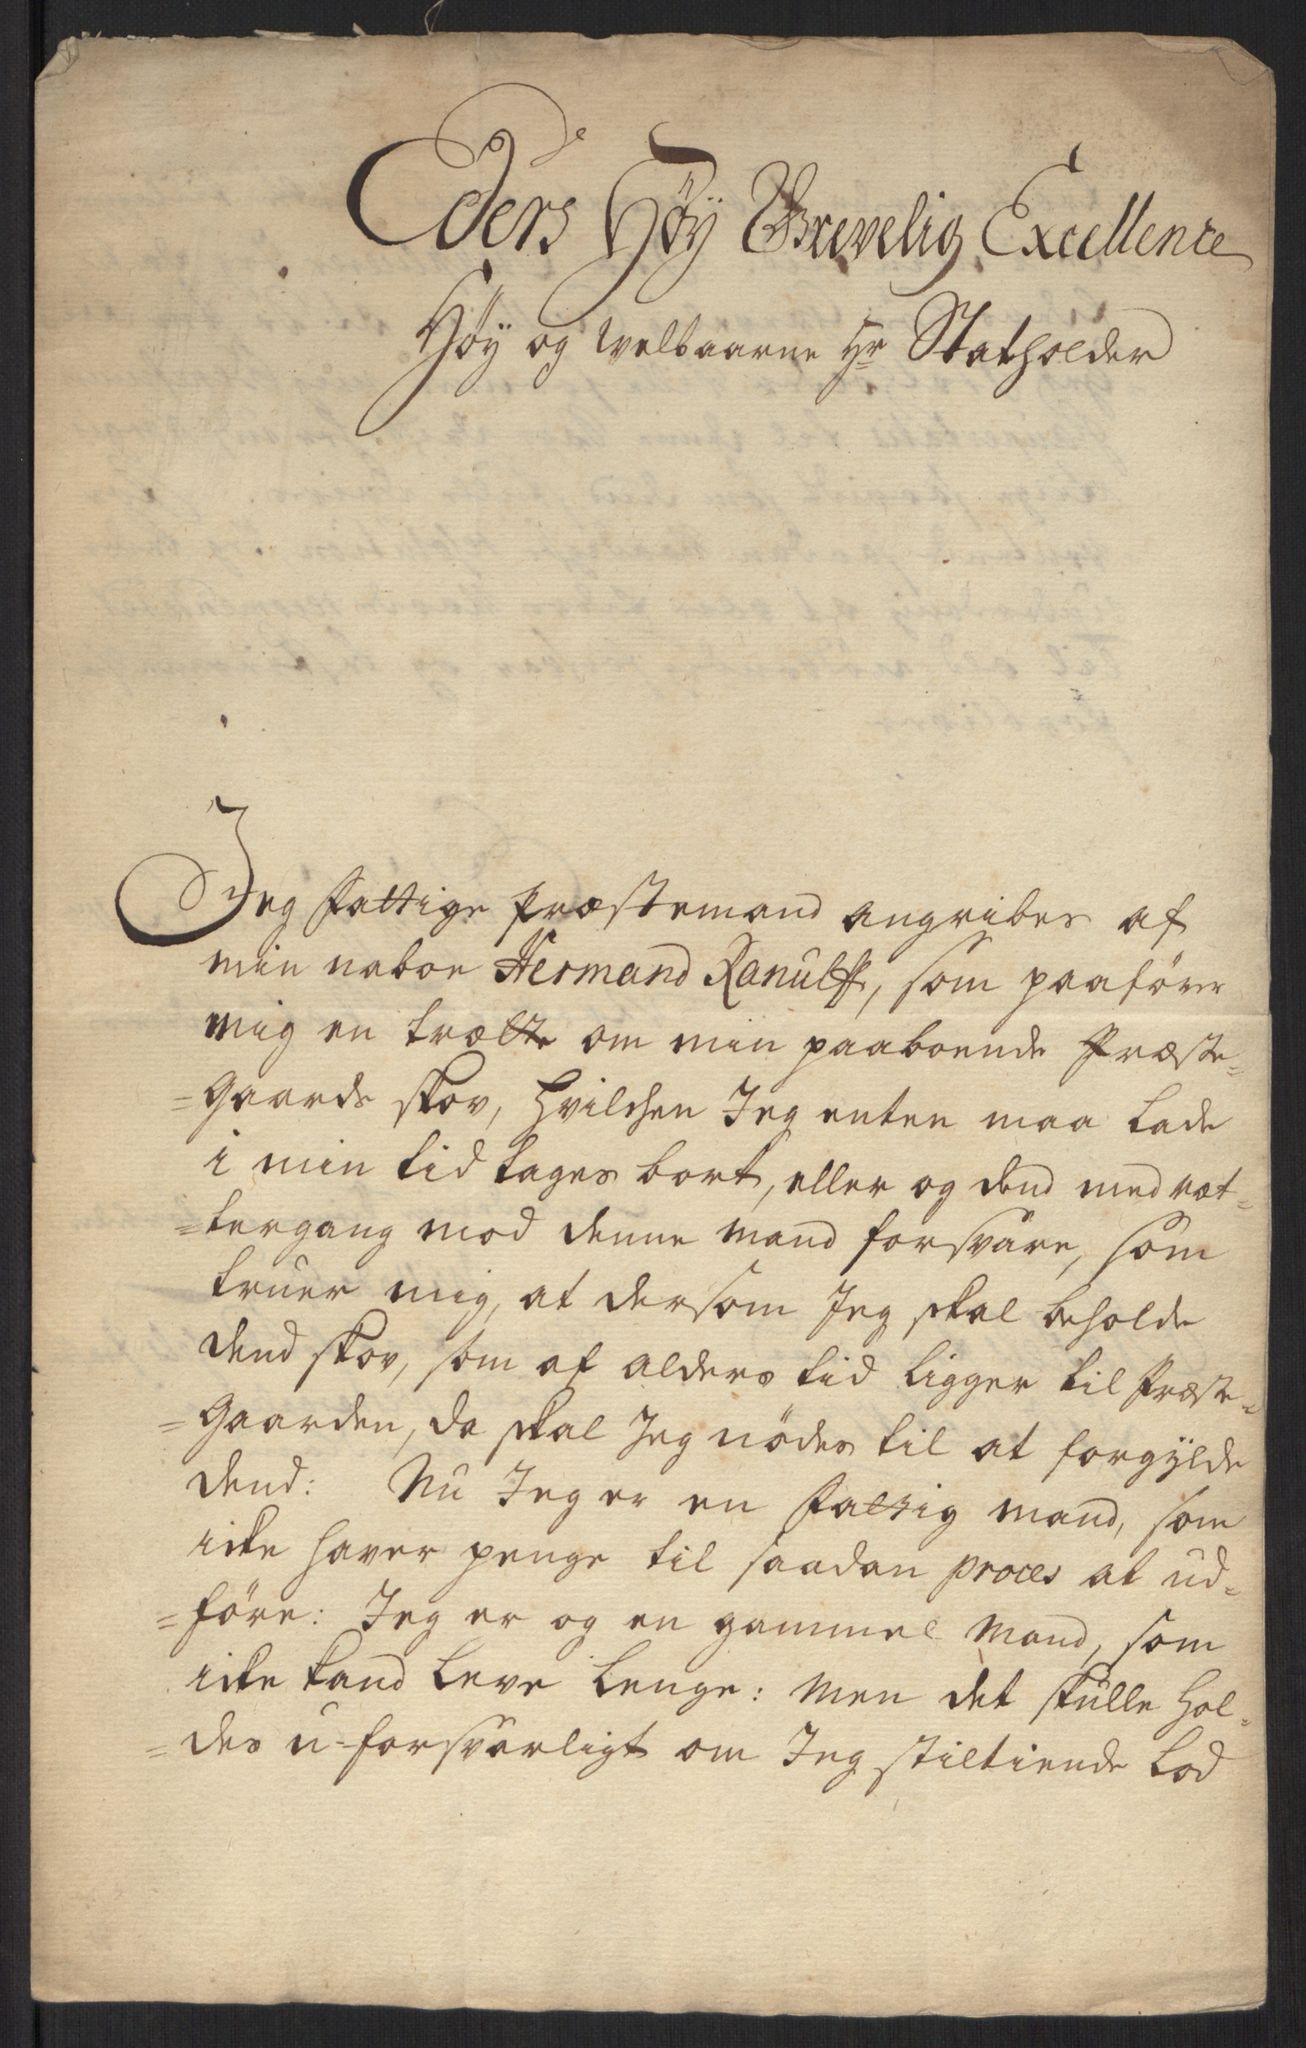 Eders Høy Grevelig Excellence
Høy og Welbaarne Hr Statholder
Jeg fattige Præstemand angribes af
min naboe Hermand Ranulff, som paafører
mig en trætte om min paaboende Præste-
=Gaards skov, hvilchen Jeg enten maa lade
i min tid tages bort, eller og dend med ræt-
=tergang mod denne mand forsvare, som
truer mig, at dersom Jeg skal beholde
dend skov, som af alders tid ligger til Præste-
=Gaarden, da skal Jeg nødes til at forgylde
dend: Nu Jeg er en fattig mand, som
icke haver penge til saadan proces at ud-
=føre: Jeg er og en gammel Mand, som
icke kand leve lenge: Men det skulle hol-
=des u-forsvarligt om Jeg stiltiende lod